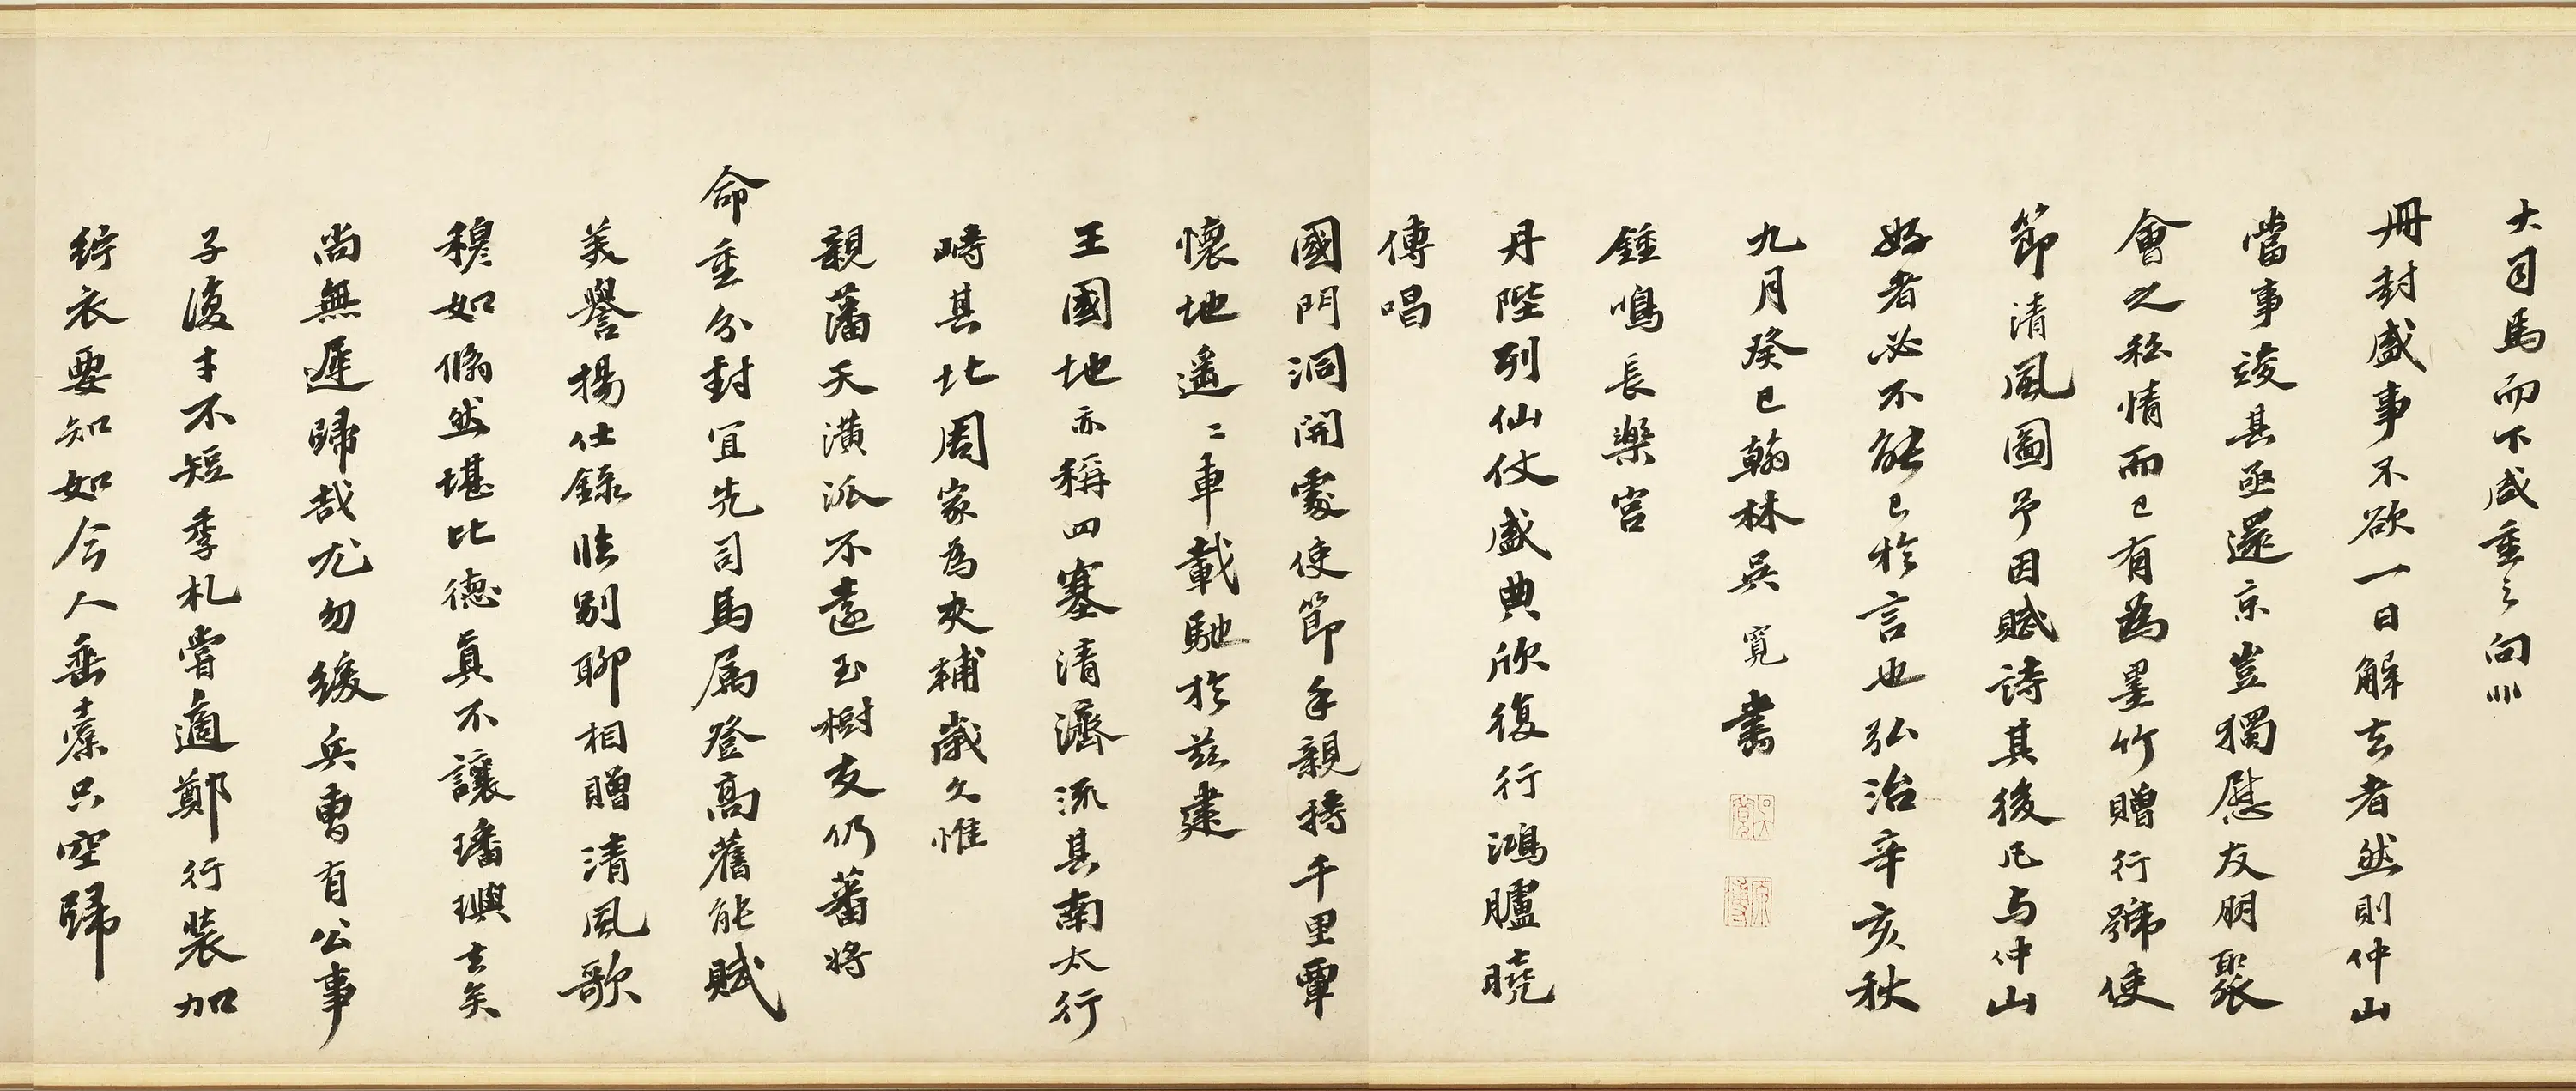 大司馬而不咸重之向非
冊封盛事不欲一日解去者然則仲山
當事竣其亟還京豈獨慰友朋聚
會之私情而已有為墨竹贈行號使
節清風圖予因賦詩其後凡与仲山
好者必不能已於言也弘治辛亥秋
九月癸巳翰林吳寬書
鍾鳴長樂宮
丹陛列仙仗盛典欣復行鴻臚曉
傳唱
國門洞開處使節手親持千里覃
懷地遥二車載馳於茲建
王國地亦稱四塞清濟流其南太行
峙其北周家為夾輔歲久惟
親藩天潢派不遠玉樹友仍蕃將
命重分封宜先司馬屬登高舊能賦
美譽揚仕錄臨别聊相贈清風歌
穆如翛然堪比德真不讓璠璵去矣
尚無遲歸哉尤勿緩兵曹有公事
子復才不短季札嘗適鄭行裝加
紵衣要知如今人垂橐只空歸